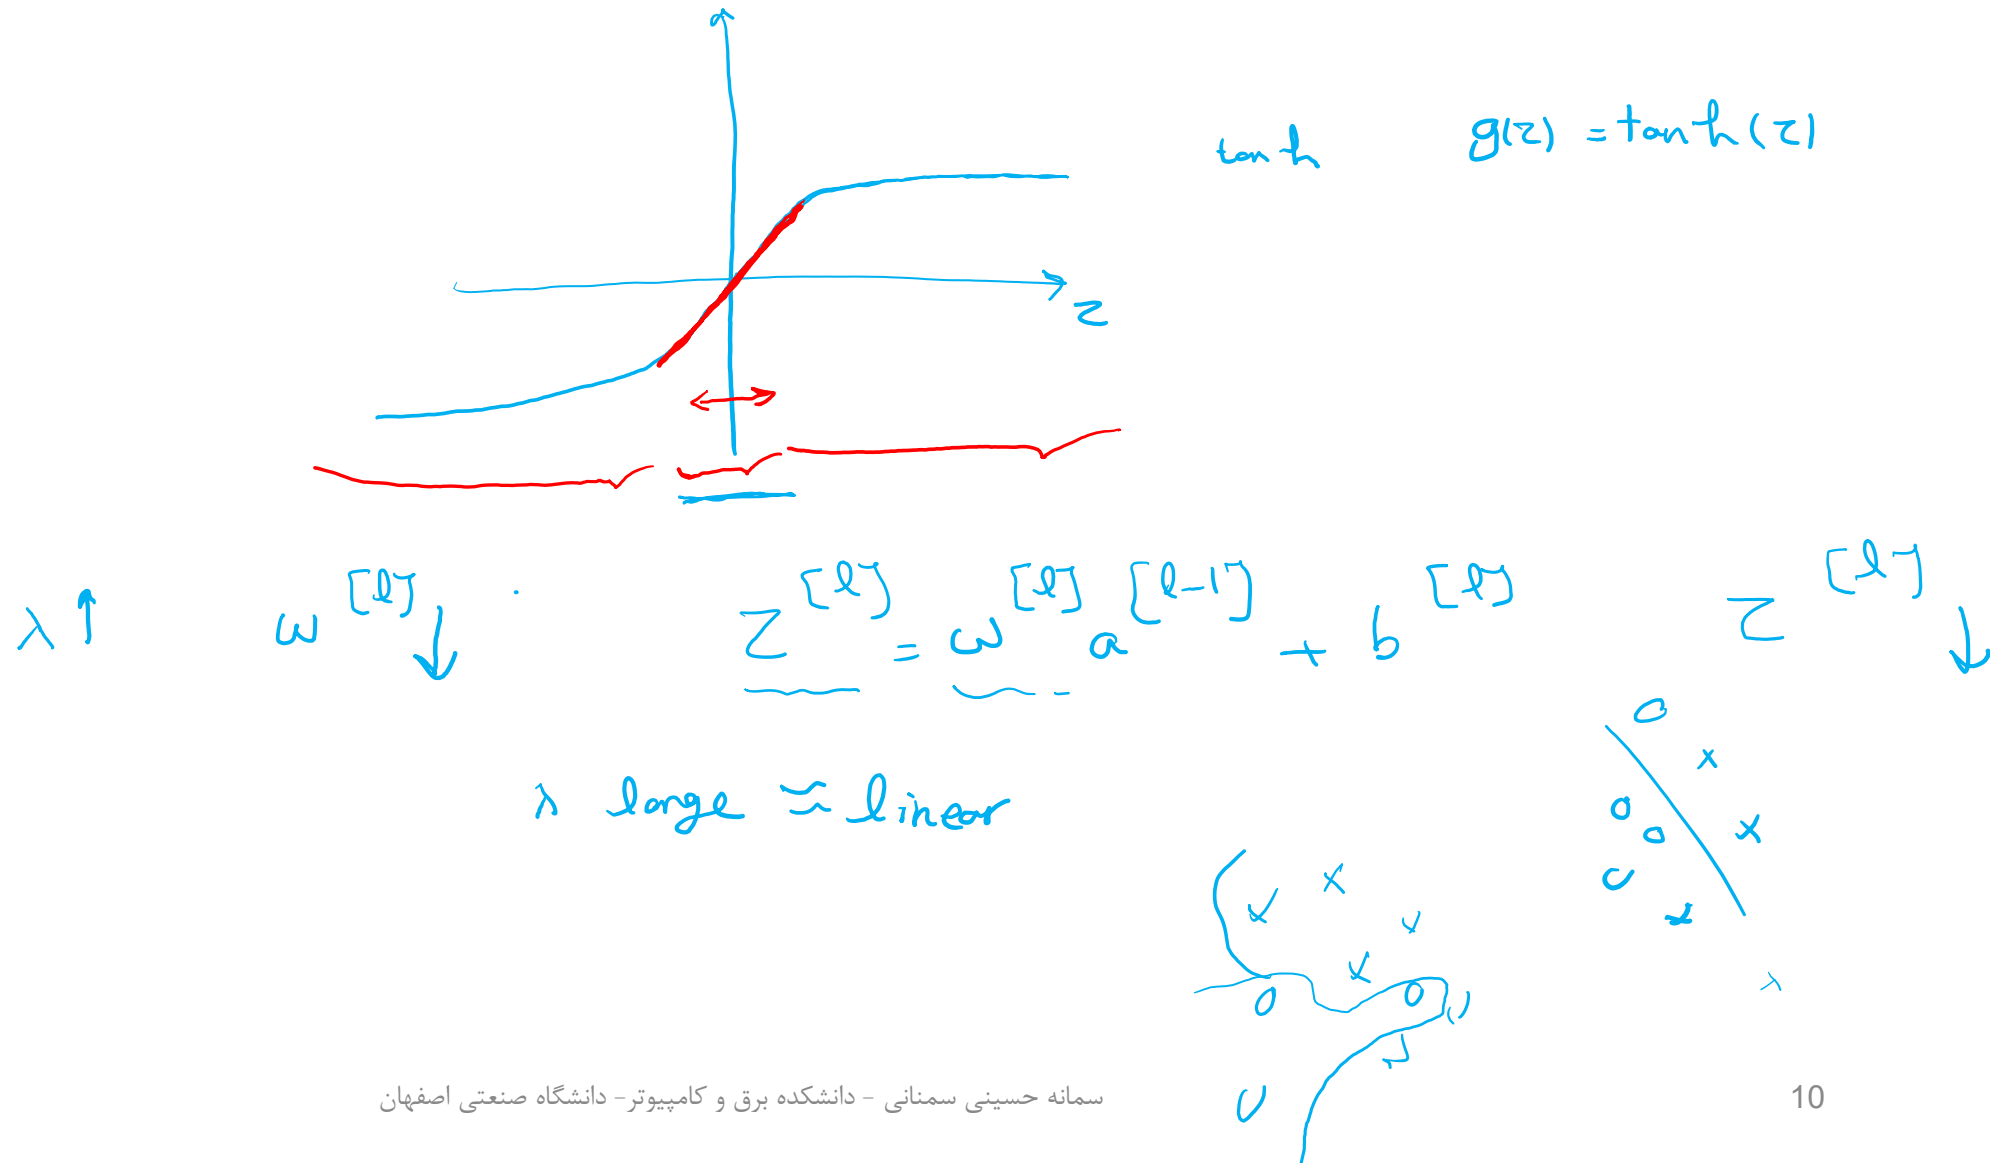 tanh g(z) = tanh(z)
z
λ↑ w^[l]↓ z^[l] = w^[l] a^[l-1] + b^[l] z^[l]↓
λ large ≈ linear
λ
سمانه حسینی سمنانی - دانشکده برق و کامپیوتر- دانشگاه صنعتی اصفهان
10